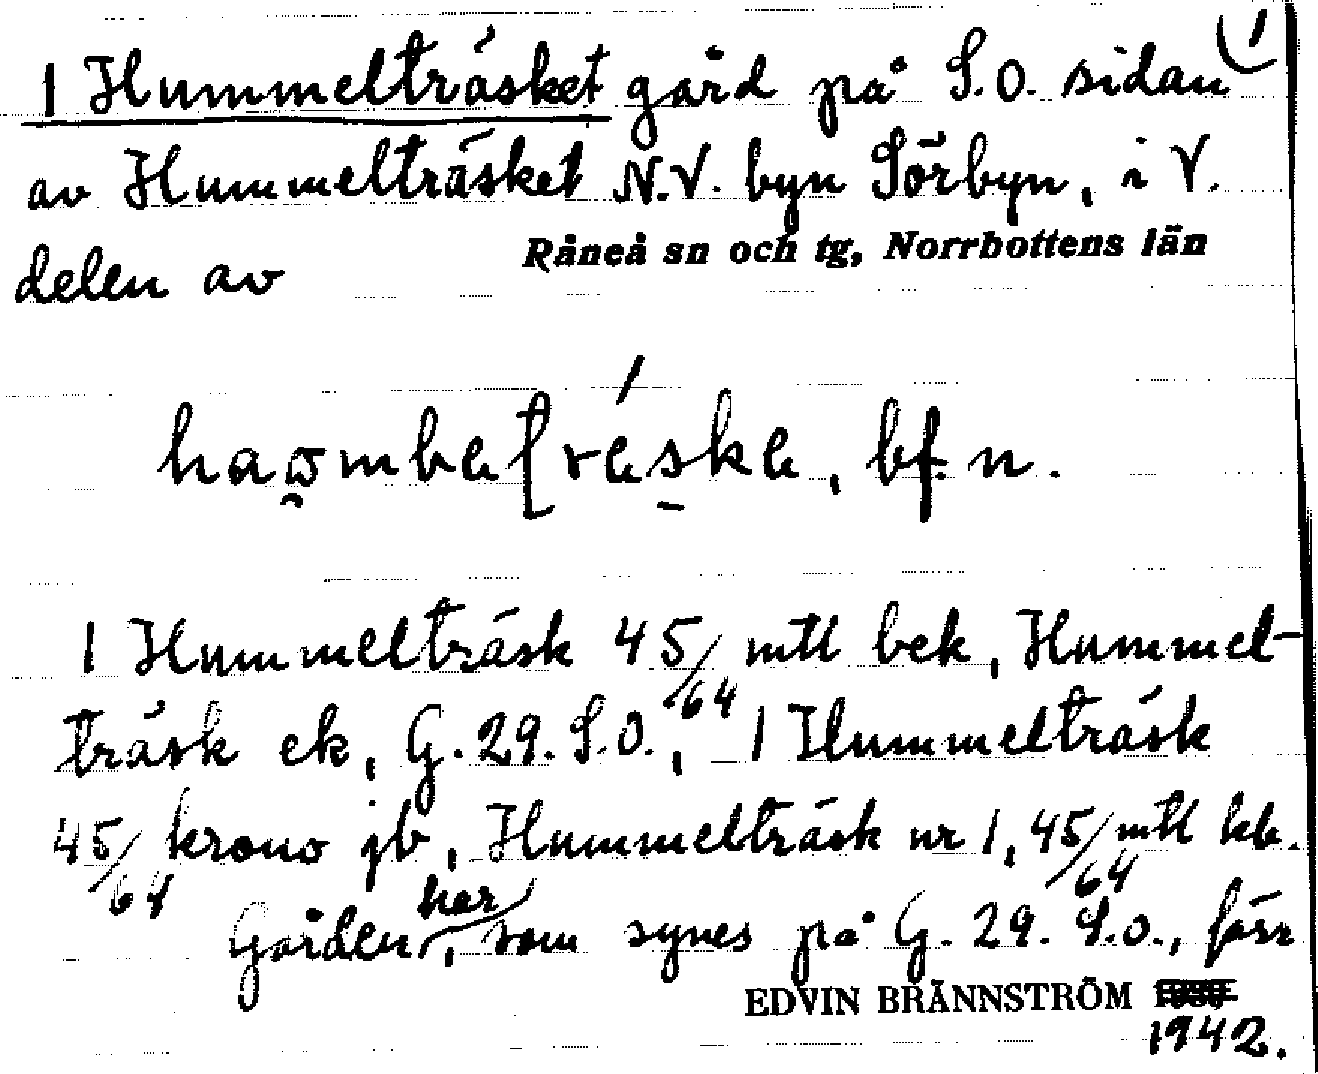 1)
1 Hummelträsket gård på S.O. sidan
av Hummelträsket N.V. byn Sörbyn, i V.
delen av Råneå sn och tg, Norrbottens län
bf. n.
1 Hummelträsk 45/64 mtl bek, Hummel-
träsk ek, G. 29. S.O., 1 Hummelträsk
45/64 krono jb, Hummelträsk nr 1, 45/64 mtl kb.
Gården har, som synes på G. 29. S.O., förr
EDVIN BRÄNNSTRÖM 1942.